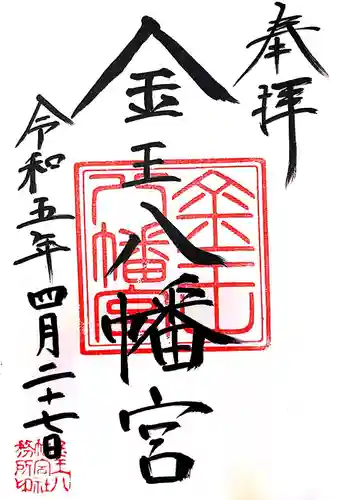 奉拝
金王八幡宮
令和五年四月二十七日
金王八幡宮
金王八幡宮社務所印